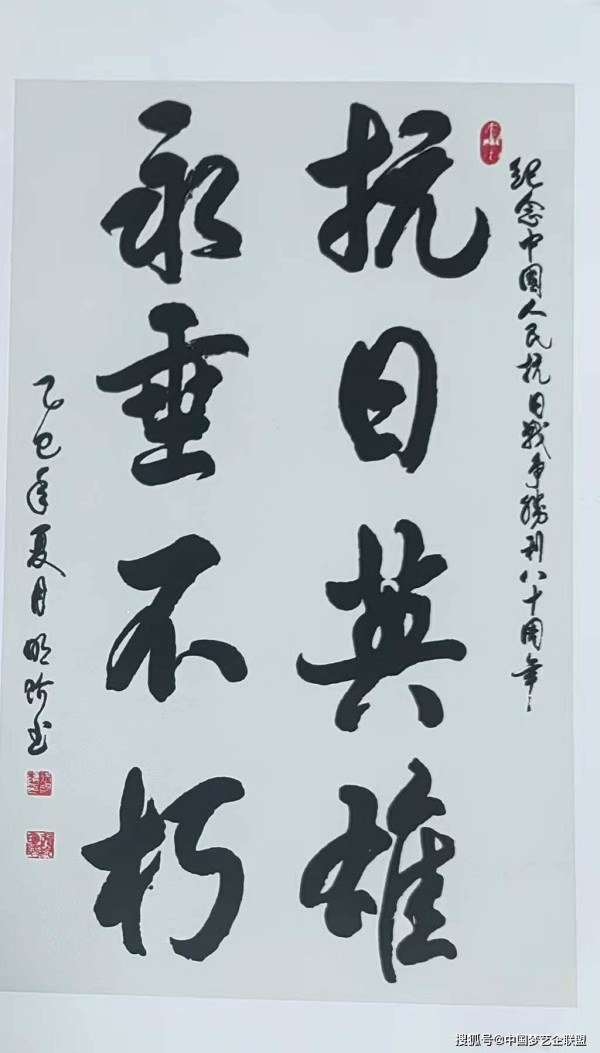 纪念中國人民抗日戰争勝利八十周年
抗日英雄
永垂不朽
乙巳年夏月明
搜狐号@中国梦艺企联盟